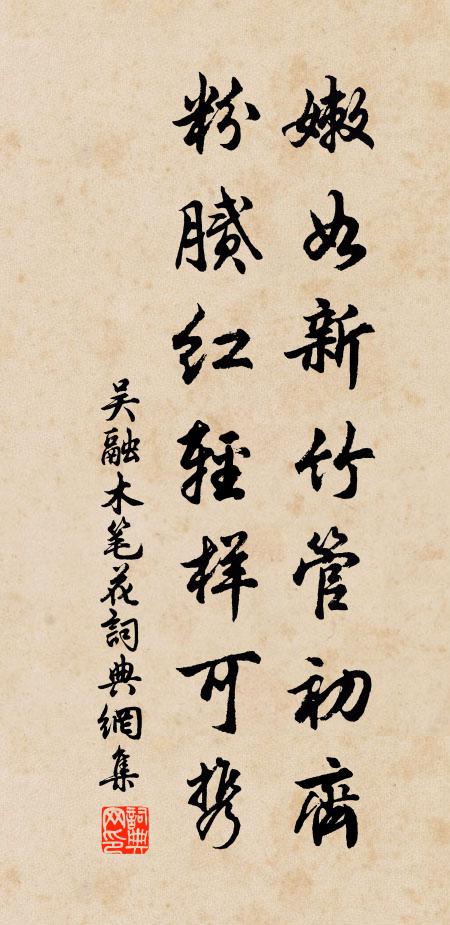 嫩如新竹管初齊
粉膩紅輕样可携
吴融木笔花詞典網集
詞典网印